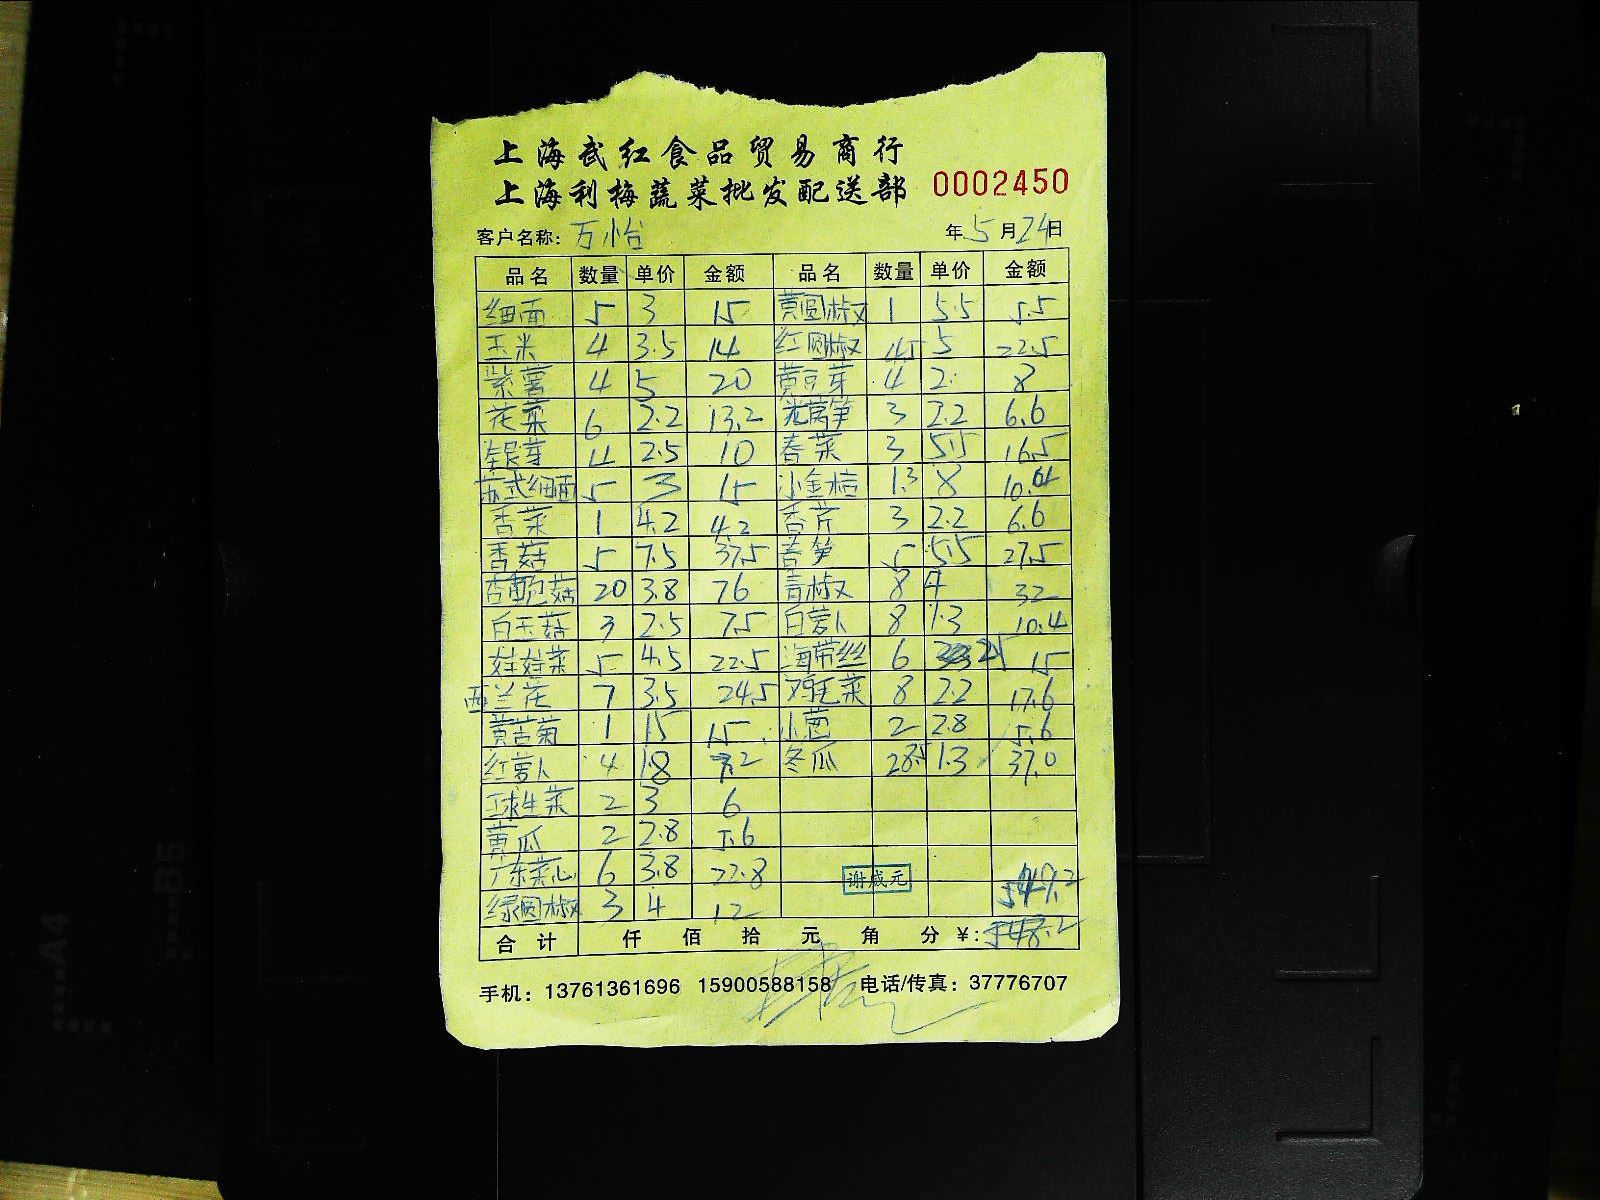 上海武红食品贸易商行
上海利梅蔬菜批发配送部 0002450
客户名称: 万怡 年 5 月 24 日
品名 数量 单价 金额 品名 数量 单价 金额
细面 5 3 15 黄圆椒 1 5.5 5.5
玉米 4 3.5 14 红圆椒 4.5 5 22.5
紫薯 4 5 20 黄豆芽 4 2 8
花菜 6 2.2 13.2 光莴笋 3 2.2 6.6
银芽 4 2.5 10 春菜 3 5.5 16.5
苏式细面 5 3 15 小金桔 1.3 8 10.04
香菜 1 4.2 4.2 香芹 3 2.2 6.6
香菇 5 7.5 37.5 春笋 5 5.5 27.5
杏鲍菇 20 3.8 76 青椒 8 4 32
白玉菇 3 2.5 7.5 白萝卜 8 1.3 10.4
娃娃菜 5 4.5 22.5 海带丝 6 2.5 15
西兰花 7 3.5 24.5 鸡毛菜 8 2.2 17.6
黄苦菊 1 15 15 小葱 2 2.8 5.6
红萝卜 4 1.8 7.2 冬瓜 28.5 1.3 37.0
球生菜 2 3 6
黄瓜 2 2.8 5.6
广东菜心 6 3.8 22.8 谢成元 549.2
绿圆椒 3 4 12
合计 仟 佰 拾 元 角 分 ¥: 548.2
手机: 13761361696 15900588158 电话/传真: 37776707